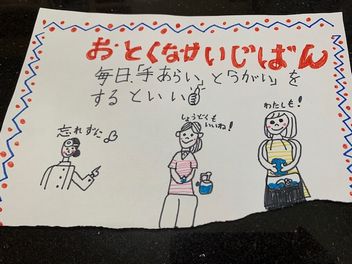 おとくなけいじばん
毎日、「手あらい」と「うがい」を
するといい
忘れずに♪
しょうどくも
いいね!
わたしも!